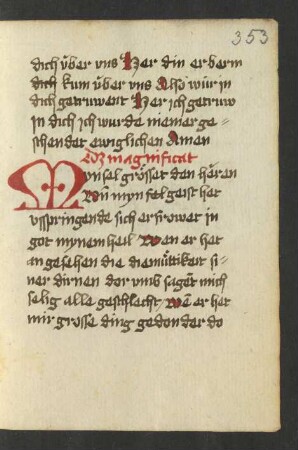 353
dich über vns Her din erberm
dich kum über vns Also wür in
dich getruwent Her ich getruw
in dich ich wurde niemer ge-
schendet ewiglichen Amen
dz magnificat
Myn sel grösset den heren
Wan myn sel geist het
vsspringende sich erfrowet in
got mynem heil Wen er het
an gesehen die diemüttikeit si-
ner dirnen dor vmb saget mich
selig alle geschlecht wē er het
mir grosse ding gedon der do